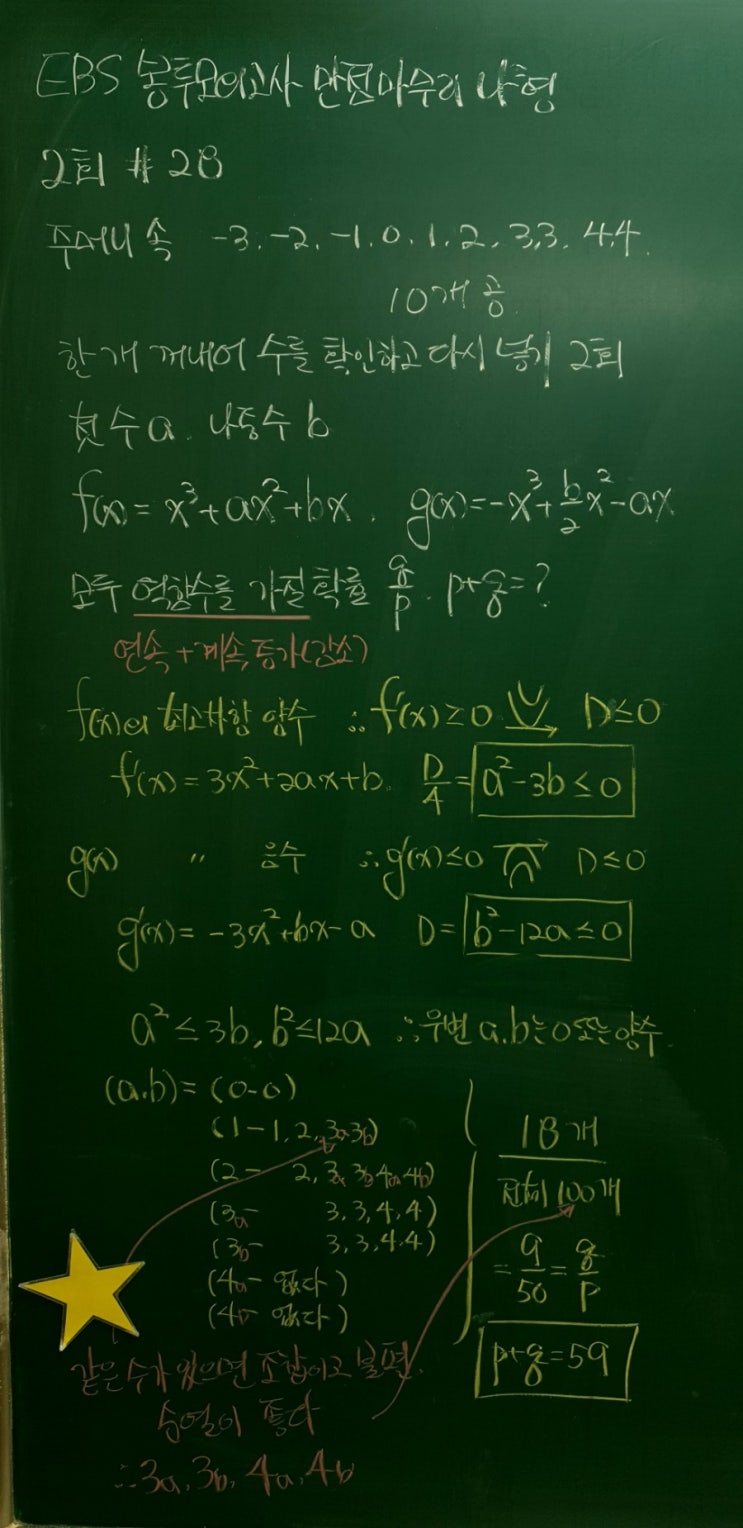 EBS 봉투모의고사 만점마무리 나형
2회 # 28
주머니 속 -3. -2. -1. 0. 1. 2. 3,3. 4,4.
10개 공
한개 꺼내어 수를 확인하고 다시 넣기 2회
첫수 a. 나중수 b
f(x) = x³+ax²+bx. g(x)=-x³+b/2x²-ax
모두 역함수를 가질 확률 q/p. p+q=?
연속 + 계속 증가(감소)
f(x)의 최고차항 양수 ∴ f'(x)≥0 D≤0
f'(x) = 3x²+2ax+b. D/4 = a²-3b≤0
g(x) " 음수 ∴ g'(x)≤0 D≤0
g'(x) = -3x²+bx-a D= b²-12a≤0
a²≤3b, b²≤12a ∴ 우변 a.b는 0 또는 양수
(a.b)= (0-0)
(1-1, 2, 3a, 3b)
(2- 2, 3a, 3b, 4a, 4b)
(3a- 3, 3, 4, 4)
(3b- 3, 3, 4, 4)
(4a- 없다)
(4b- 없다)
18개
전체 100개
= 9/50 = q/p
p+q=59
같은 수가 있으면 조합이고 불편.
순열이 좋다
∴ 3a, 3b, 4a, 4b